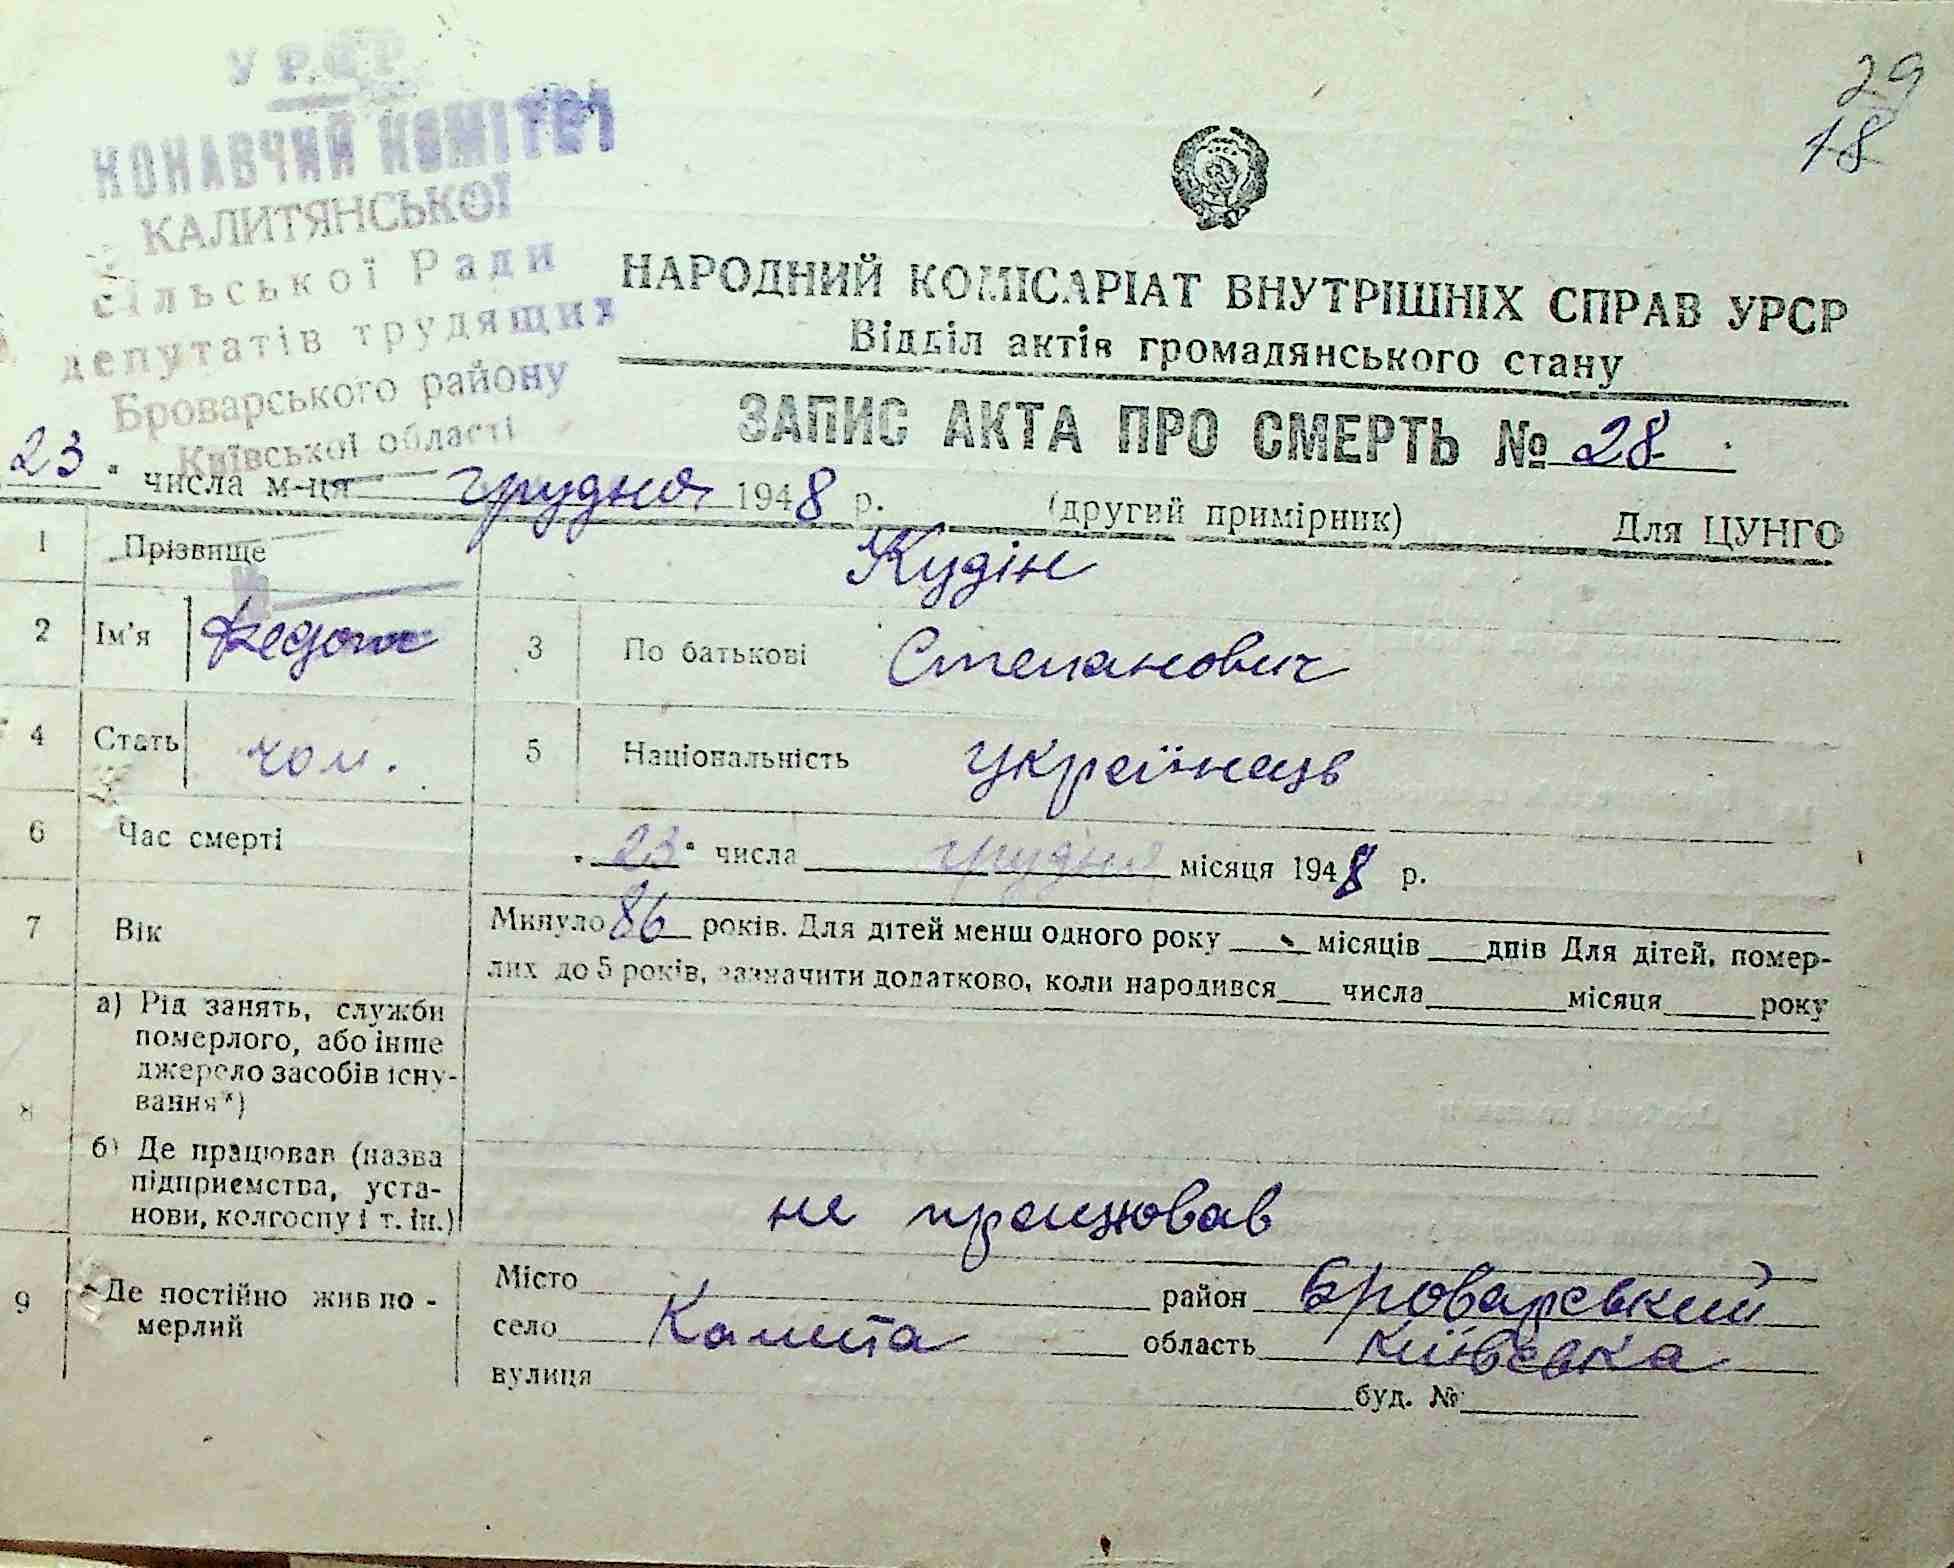 29
18
УРСР
КОНАВЧИЙ КОМІТЕТ
КАЛИТЯНСЬКОЇ
сільської Ради
депутатів трудящих
Броварського району
Київської області
НАРОДНИЙ КОМІСАРІАТ ВНУТРІШНІХ СПРАВ УРСР
Відділ актів громадянського стану
ЗАПИС АКТА ПРО СМЕРТЬ № 28
23 " числа м-ця грудня 1948 р. (другий примірник) Для ЦУНГО
1 Прізвище Кудін
2 Ім'я Федот 3 По батькові Степанович
4 Стать чол. 5 Національність українець
6 Час смерті „ 23 " числа грудня місяця 1948 р.
7 Вік Минуло 86 років. Для дітей менш одного року місяців днів Для дітей, помер-
лих до 5 років, зазначити додатково, коли народився числа місяця року
8 а) Рід занять, служби
померлого, або інше
джерело засобів існу-
вання*)
б) Де працював (назва
підприємства, уста-
нови, колгоспу і т. ін.) не працював
9 Де постійно жив по-
мерлий
Місто район Броварський
село Калита область Київська
вулиця буд. №